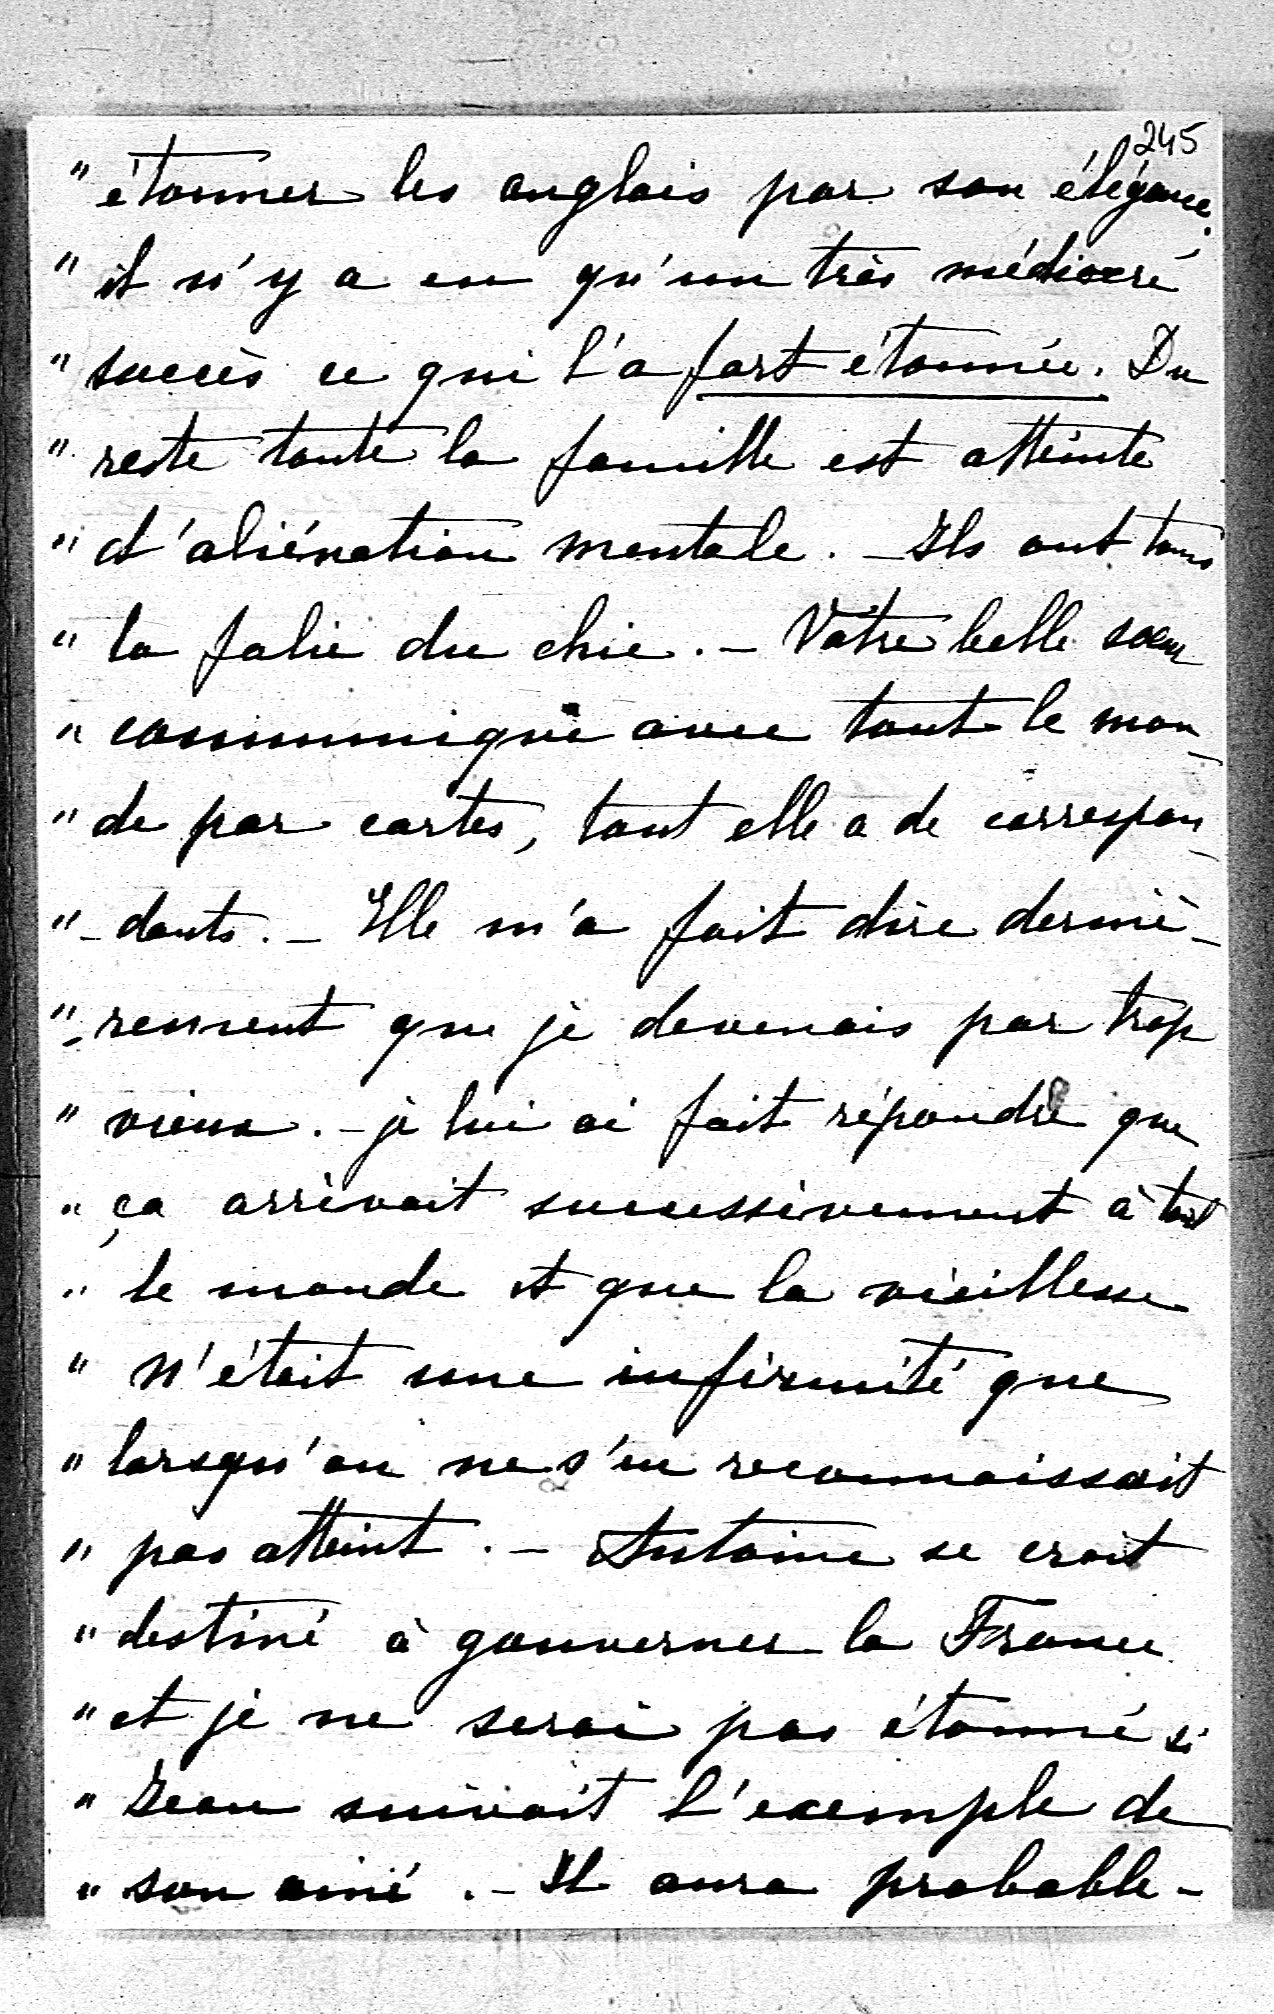 245
" étonner les anglais par son élégance.
" il n'y a eu qu'un très médiocre
" succès ce qui l'a fort étonnée. Du
" reste toute la famille est atteinte
" d'aliénation mentale. - Ils ont tous
" la folie du chic. - Votre belle sœur
" communique avec tout le mon-
" de par cartes, tant elle a de correspon-
" -dants. - Elle m'a fait dire derniè-
" -rement que je devenais par trop
" vieux. - je lui ai fait répondre que
" ça arrivait successivement à tout
" le monde et que la vieillesse
" n'était une infirmité que
" lorsqu'on ne s'en reconnaissait
" pas atteint. - Antoine se croit
" destiné à gouverner la France
" et je ne serai pas étonné si
" Jean suivait l'exemple de
" son ainé. - Il aura probable-